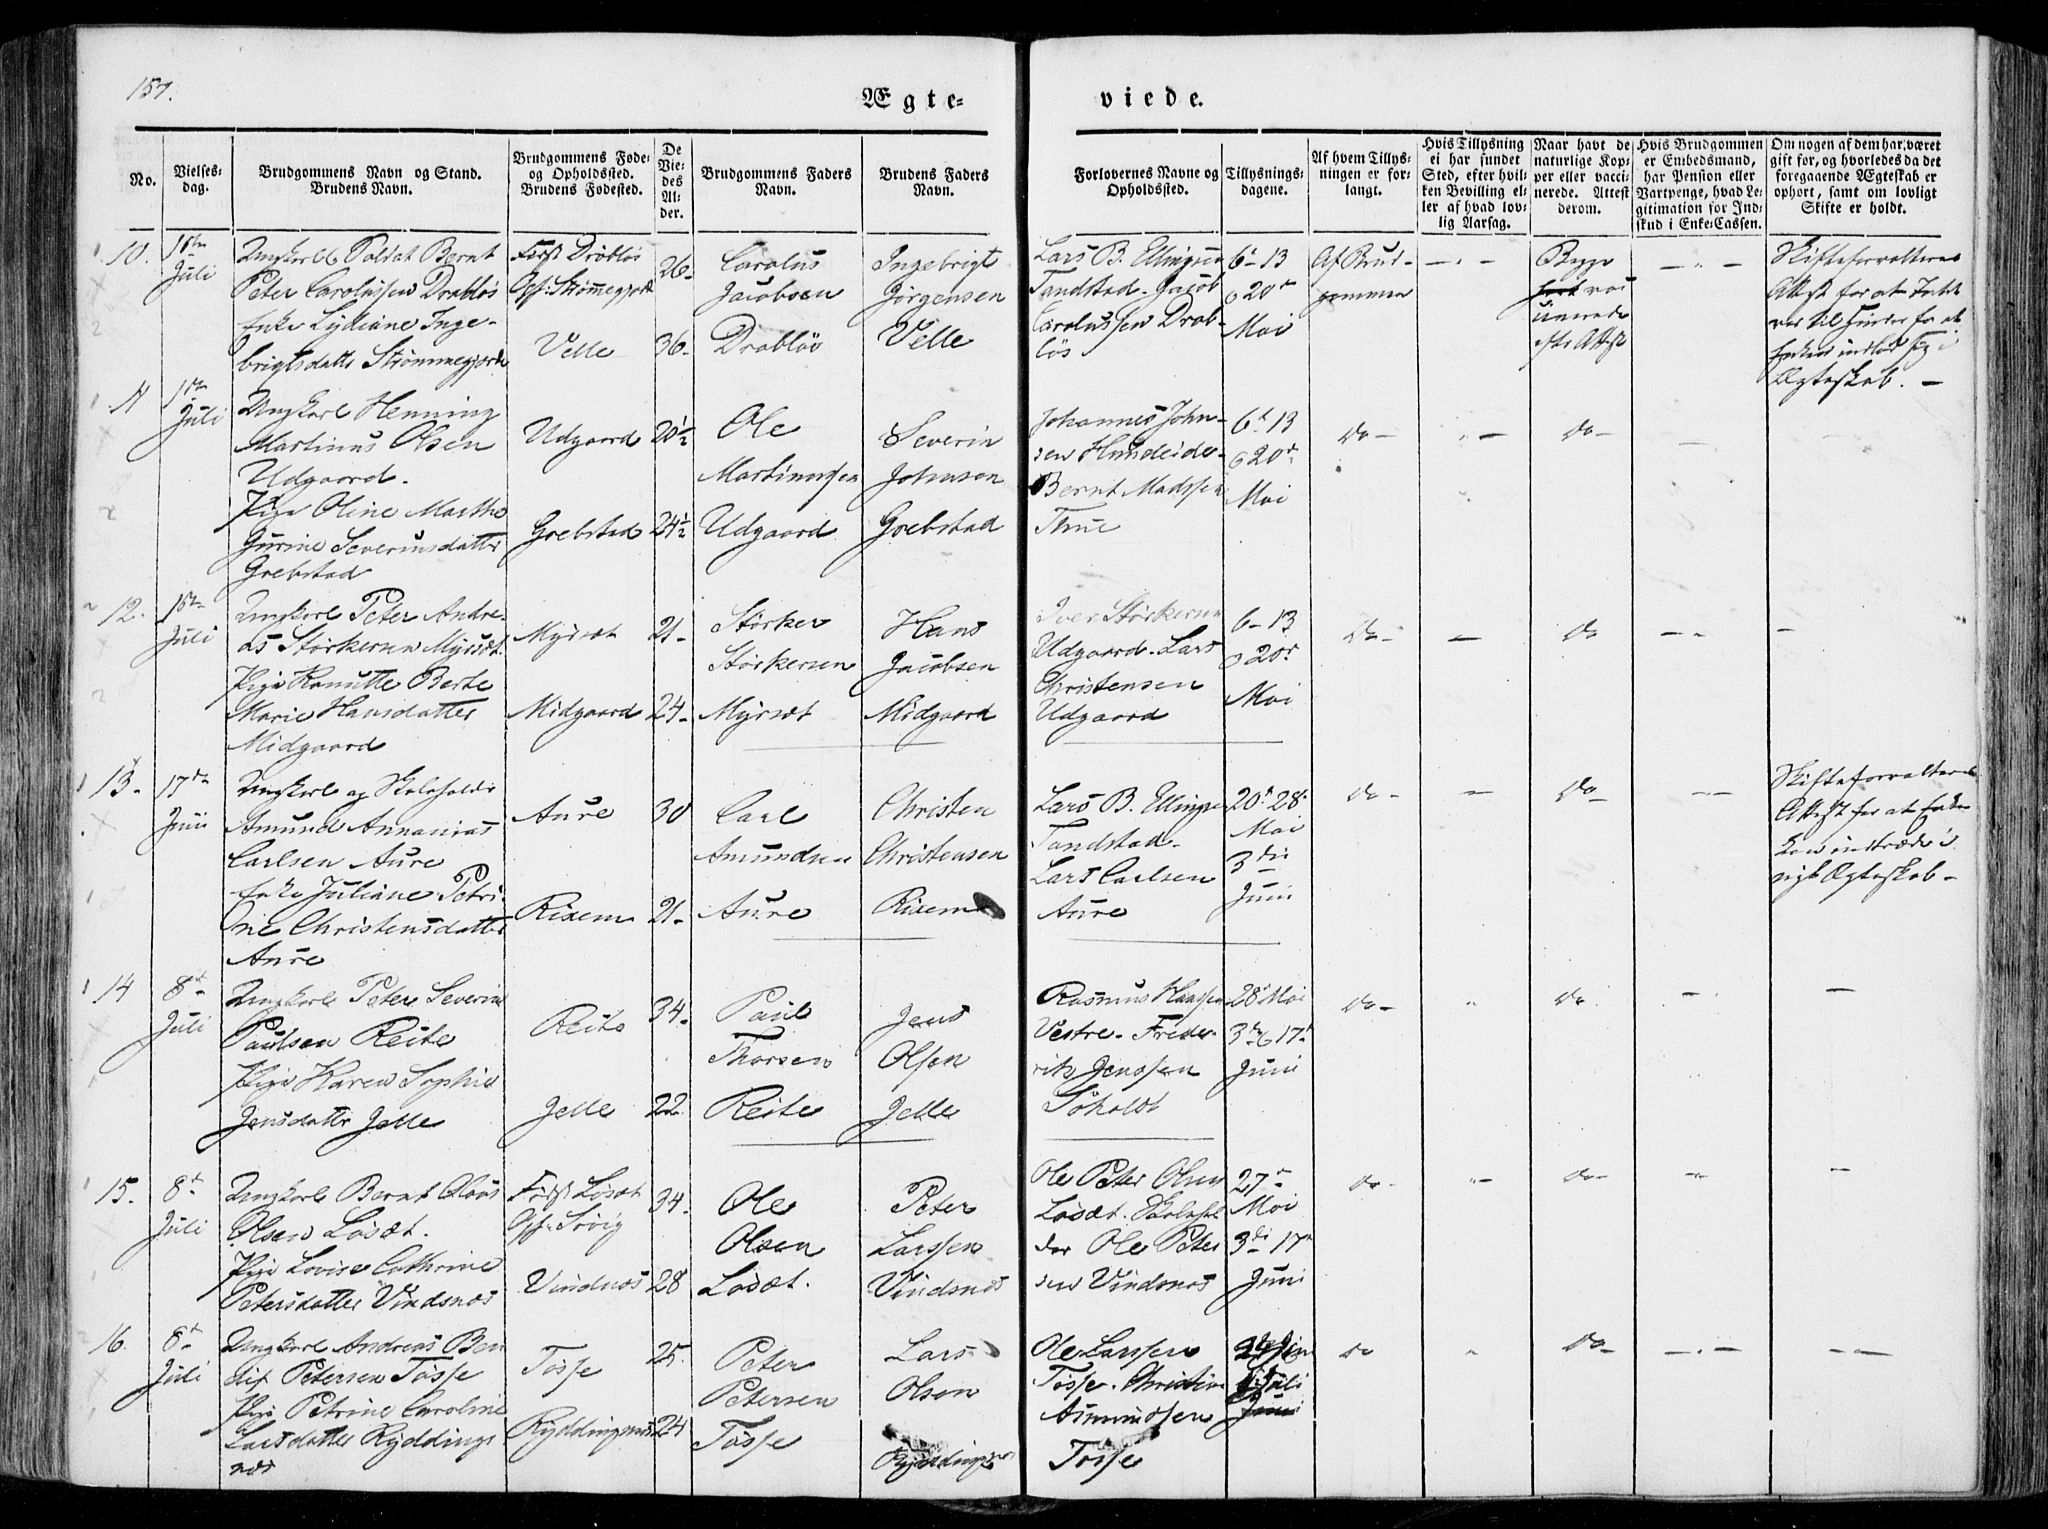 157.
Ægte-
viede.
No.
Vielses-
dag.
Brudgommens Navn og Stand.
Brudens Navn.
Brudgommens Føde-
og Opholdssted.
Brudens Fødested.
De
Vie-
des
Al-
der.
Brudgommens Faders
Navn.
Brudens Faders
Navn.
Forlovernes Navne og
Opholdssted.
Tillysnings-
dagene.
Af hvem Tillys-
ningen er for-
langt.
Hvis Tillysning
ei har fundet
Sted, efter hvil-
ken Bevilling el-
ler af hvad lov-
lig Aarsag.
Naar havt de
naturlige Kop-
per eller vacci-
nerede. Attest
derom.
Hvis Brudgommen
er Embedsmand,
har Pension eller
Vartpenge, hvad Le-
gitimation for Ind-
skud i Enke-Cassen.
Om nogen af dem har været
gift før, og hvorledes da det
foregaaende Ægteskab er
ophørt, samt om lovligt
Skifte er holdt.
10.
Juli
Ungkarl Soldat Bernt
Peter Carolussen Drabløs
Enke Lydiane Inge-
brigtsdatter Strømmegjerde
Født Drabløs
Opf. Strømmegjerde
Velle
26-
36-
Carolus
Jacobsen
Drabløs
Ingebrigt
Jørgensen
Velle
Lars B. Ellingsen
Tandstad. Jacob
Carolussen Drab-
løs
6-13
20
Mai
Af Brud-
gommen
Begge
vac
cinerede
efter Attest
Skifteforvalterens
Attest for at Intet
var til Hinder for at
Enken indlod sig i
Ægteskab. -
11
Juli
Ungkarl Henning
Martinus Olsen
Udgaard.
Pige Oline Marthe
Gurine Severinsdatter
Grebstad
Udgaard
Grebstad
20½
24½
Ole
Martinussen
Udgaard
Severin
Johnsen
Grebstad
Johannes John-
sen Hundeide-
Bernt Madssen
Thue
6 13
20
Mai
do -
do -
12.
Juli
Ungkarl Peter Andre-
as Størkersen Myrsæt.
Pige Berte
Marie Hansdatter
Midgaard
Myrsæt
Midgaard
21-
24-
Størker
Størkersen
Myrsæt
Hans
Jacobsen
Midgaard
Iver Størkersen
Udgaard. Lars
Christensen
Udgaard
6-13
20
Mai
do -
do
13-
17de
Juni
Ungkarl og Skoleholder
Amund Annanias
Carlsen Aure
Enke Juliane Petri-
ne Christensdatter
Aure
Aure
Rixem
30
21-
Carl
Amundsen
Aure
Christen
Christensen
Rixem
Lars B. Ellingsen
Tandstad.
Lars Carlsen
Aure
20 28
Mai
3die
Juni
do -
do -
Skifteforvalterens
Attest for at Enken
kan indtræde i
nyt Ægteskab -
14
8
Juli
Ungkarl Peter Severin
Paulsen Reite
Pige Karen Sophie
Jensdatter Jelle
Reite
Jelle
34.
22
Paul
Thorsen
Reite
Jens
Olsen
Jelle
Rasmus Hanssen
Vestre. Frede-
rik Jenssen
Søholdt
28 Mai
3 17
Juni
do -
do
15.
8
Juli
Ungkarl Bernt Olaus
Olsen Løsæt.
Pige Lovise Cathrine
Petersdatter Vindsnæs
Født Løsæt
Opf. Sovig
Vindsnæs
34.
28
Ole
Olsen
Løsæt.
Peter
Larssen
Vindsnæs
Ole Peter Olsen
Løsæt. Skolehol-
der Ole Peter
sen Vindsnæs
27
Mai
3di 17
Juni
do -
do -
16.
8
Juli
Ungkarl Andreas Ben
dix Petersen Tøsse
Pige Petrine Caroline
Larsdatter Ryddings
næs
Tøsse
Ryddingsnæs
25.
24
Peter
Petersen
Tøsse
Lars
Olsen
Ryddingsnæs
Ole Larssen
Tøsse. Christian
Asmundsen
Tøsse
Juli
do
do -